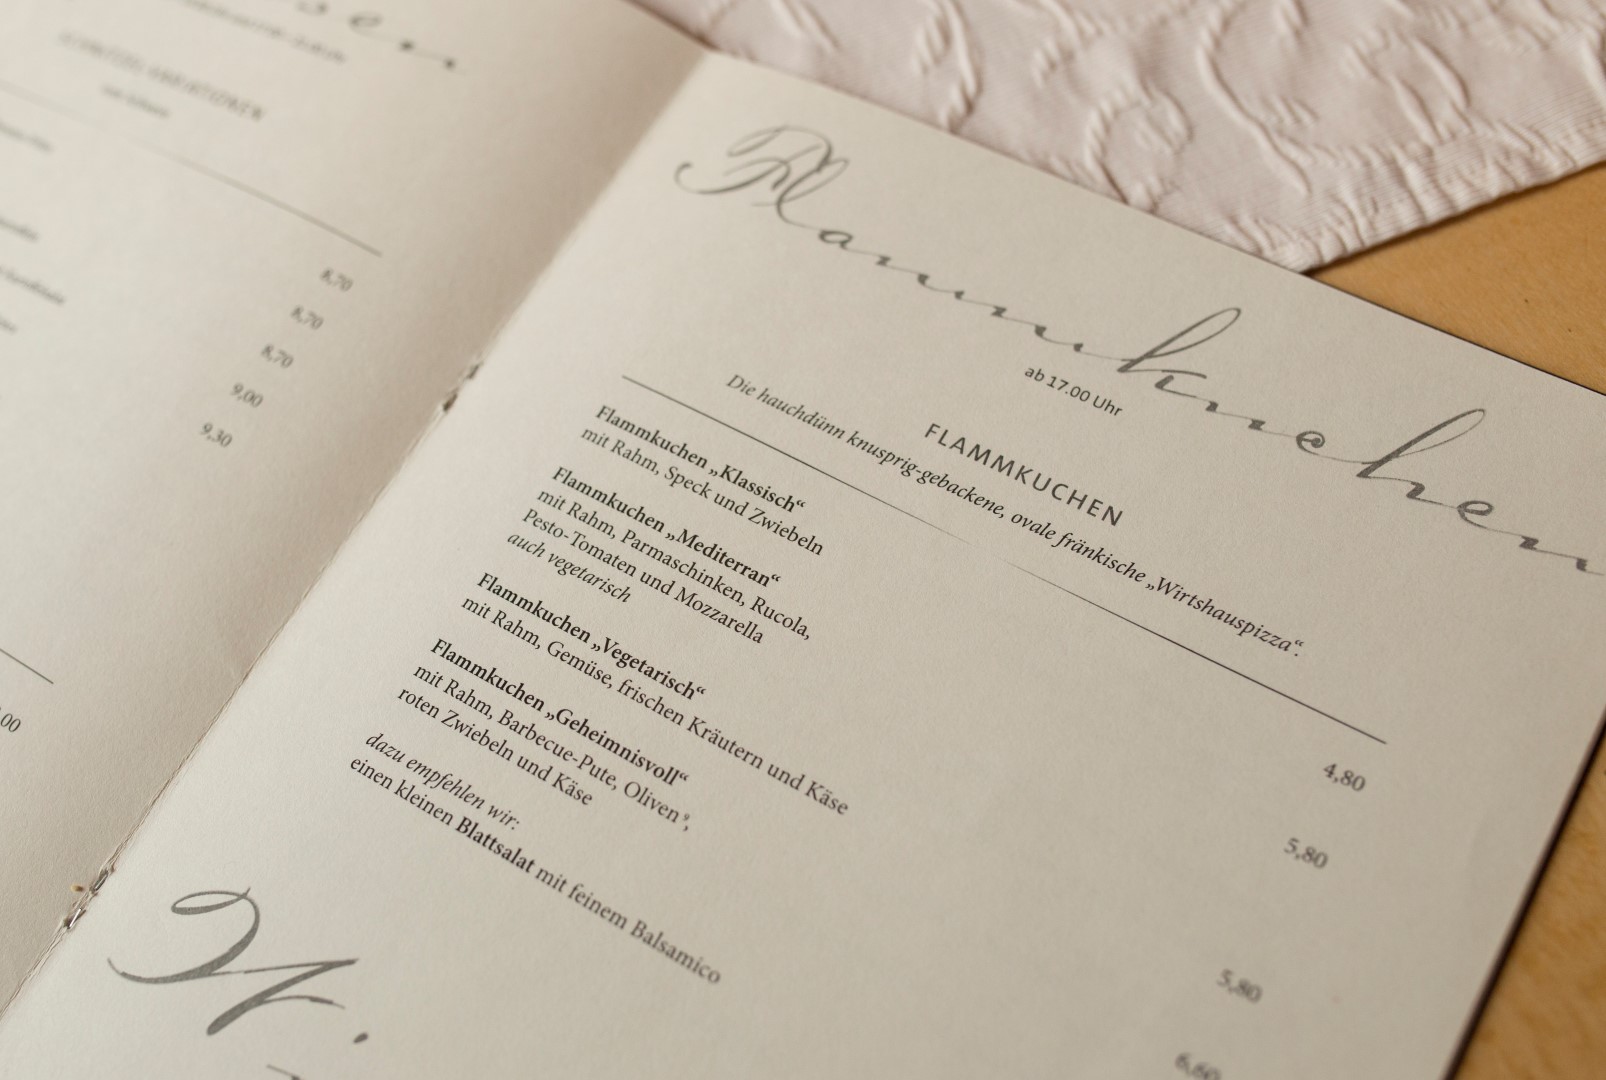 8,70
8,70
8,70
9,00
9,30
,00
Flammkuchen
ab 17.00 Uhr
FLAMMKUCHEN
Die hauchdünn knusprig-gebackene, ovale fränkische „Wirtshauspizza“.
Flammkuchen „Klassisch“
mit Rahm, Speck und Zwiebeln 4,80
Flammkuchen „Mediterran“
mit Rahm, Parmaschinken, Rucola,
Pesto-Tomaten und Mozzarella 5,80
auch vegetarisch
Flammkuchen „Vegetarisch“
mit Rahm, Gemüse, frischen Kräutern und Käse 5,80
Flammkuchen „Geheimnisvoll“
mit Rahm, Barbecue-Pute, Oliven⁹,
roten Zwiebeln und Käse 6,60
dazu empfehlen wir:
einen kleinen Blattsalat mit feinem Balsamico